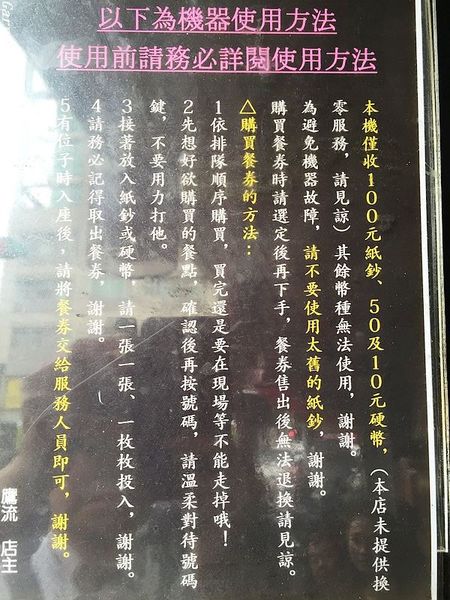 以下為機器使用方法
使用前請務必詳閱使用方法
本機僅收100元紙鈔、50及10元硬幣,(本店未提供換
零服務,請見諒)其餘幣種無法使用,謝謝。
為避免機器故障,請不要使用太舊的紙鈔,謝謝。
購買餐券時請選定後再下手,餐券售出後無法退換請見諒。
△購買餐券的方法::
1依排隊順序購買,買完還是要在現場等不能走掉哦!
2先想好欲購買的餐點,確認後再按號碼,請溫柔對待號碼
鍵,不要用力打他。
3接著放入紙鈔或硬幣,請一張一張、一枚枚投入,謝謝。
4請務必記得取出餐券,謝謝。
5有位子時入座後,請將餐券交給服務人員即可,謝謝。
鷹流 店主